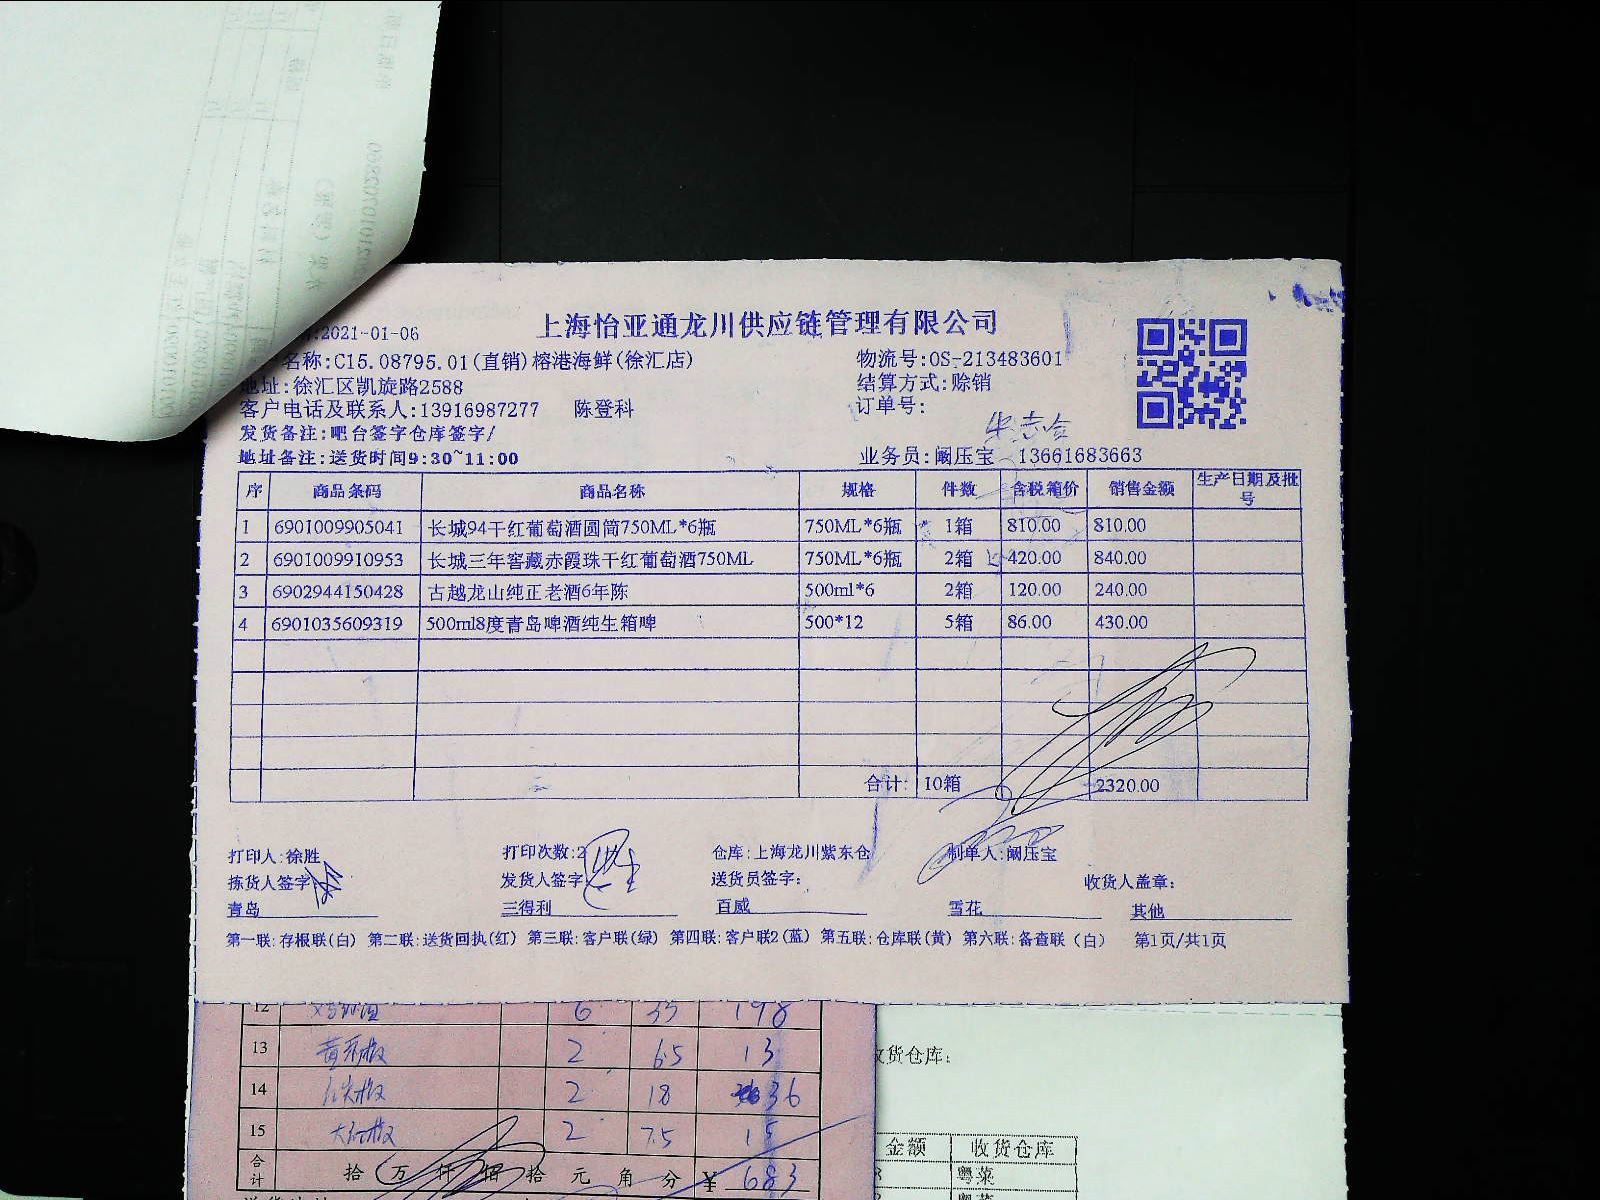 :2021-01-06
上海怡亚通龙川供应链管理有限公司
名称:C15.08795.01(直销)榕港海鲜(徐汇店)
物流号:OS-213483601
地址:徐汇区凯旋路2588
结算方式:赊销
客户电话及联系人:13916987277 陈登科
订单号:
发货备注:吧台签字仓库签字/
地址备注:送货时间9:30~11:00
业务员:阚压宝 13661683663
序 商品条码 商品名称 规格 件数 含税箱价 销售金额 生产日期及批号
1 6901009905041 长城94干红葡萄酒圆筒750ML*6瓶 750ML*6瓶 1箱 810.00 810.00
2 6901009910953 长城三年窖藏赤霞珠干红葡萄酒750ML 750ML*6瓶 2箱 420.00 840.00
3 6902944150428 古越龙山纯正老酒6年陈 500ml*6 2箱 120.00 240.00
4 6901035609319 500ml8度青岛啤酒纯生箱啤 500*12 5箱 86.00 430.00
合计: 10箱 2320.00
打印人:徐胜 打印次数:2 仓库:上海龙川紫东仓 制单人:阚压宝
拣货人签字: 发货人签字: 送货员签字: 收货人盖章:
青岛 三得利 百威 雪花 其他
第一联:存根联(白) 第二联:送货回执(红) 第三联:客户联(绿) 第四联:客户联2(蓝) 第五联:仓库联(黄) 第六联:备查联(白) 第1页/共1页
12 6 33 198
13 2 6.5 13
14 2 18 36
15 2 7.5 15
合计 拾 万 仟 佰 拾 元 角 分 ¥ 683
收货仓库:
金额 收货仓库
粤菜